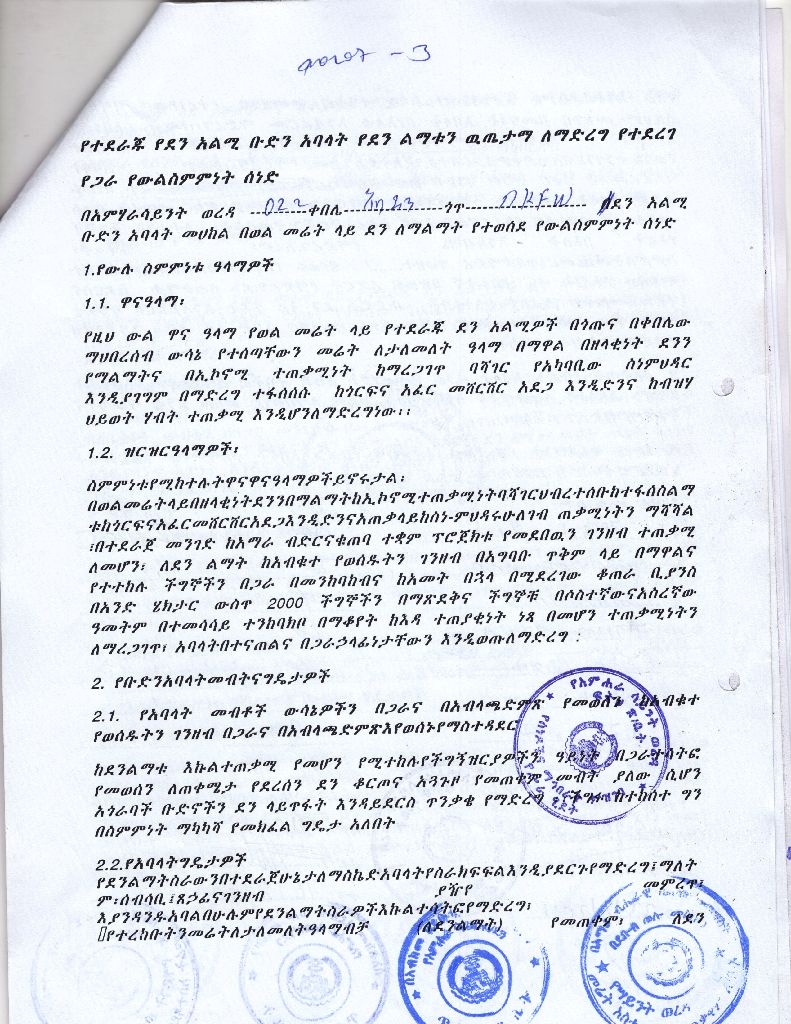 የተደራጁ የደን አልሚ ቡድን አባላት የደን ልማቱን ዉጤታማ ለማድረግ የተደረገ
የጋራ የውልስምምነት ሰነድ
በአምሃራሳይንት ወረዳ 022 ቀበሌ ጎጥ በደን አልሚ
ቡድን አባላት መሀከል በወል መሬት ላይ ደን ለማልማት የተወሰደ የውልስምምነት ሰነድ
1.የውሉ ስምምነቱ ዓላማዎች
1.1. ዋናዓላማ፡
የዚህ ውል ዋና ዓላማ የወል መሬት ላይ የተደራጁ ደን አልሚዎች በጎጡና በቀበሌው
ማህበረሰብ ውሳኔ የተሰጣቸውን መሬት ለታለመለት ዓላማ በማዋል በዘላቂነት ደንን
የማልማትና በኢኮኖሚ ተጠቃሚነት ከማረጋገዋ ባሻገር የአካባቢው ስነምህዳር
እንዲያገግም በማድረግ ተፋሰሰሱ ከጎርፍና አፈር መሸርሸር አደጋ እንዲድንና ከብዝሃ
ህይወት ሃብት ተጠቃሚ እንዲሆንለማድረግነው፡፡
1.2. ዝርዝርዓላማዎች፡
ስምምነቱየሚከተሉትዋናዋናዓላማዎችይኖሩታል፡
በወልመሬትላይበዘላቂነትደንንበማልማትከኢኮኖሚተጠቃሚነትባሻገርህብረተሰቡከተፋሰስልማ
ቱከጎርፍናአፈርመሸርሸርአደጋእንዲድንናአጠቃላይከስነ-ምህዳሩሁለገብ ጠቃሚነትን ማሻሻል
፣በተደራጀ መንገድ ከአማራ ብድርናቁጠባ ተቋም ፕሮጀክቱ የመደበዉን ገንዘብ ተጠቃሚ
ለመሆን፣ ለደን ልማት ከአብቁተ የወሰዱትን ገንዘብ በአግባቡ ጥቅም ላይ በማዋልና
የተተከሉ ችግኞችን በጋራ በመንከባከብና ከአመት በኋላ በሚደረገው ቆጠራ ቢያንስ
በአንድ ሄክታር ውስጥ 2000 ችግኞችን በማጽደቅና ችግኞቹ በሶስተኛውናአስረኛው
ዓመትም በተመሳሳይ ተንከባክቦ በማቆየት ከእዳ ተጠያቂነት ነጻ በመሆን ተጠቃሚነትን
ለማረጋገዋ፣ አባላትበተናጠልና በጋራኃላፊነታቸውን እንዲወጡለማድረግ ፡
2. የቡድንአባላትመብትናግዴታዎች
2.1. የአባላት መብቶች ውሳኔዎችን በጋራና በአብላጫድምጽ የመወሰን ከአብቁተ
የወሰዱትን ገንዘብ በጋራና በአብላጫድምጽእየወሰኑየማስተዳደር
ከደንልማቱ እኩልተጠቃሚ የመሆን የሚተከሉየችግኝዝርያዎችን ዓይነት በጋራተሳትፎ
የመወሰን ለጠቀሜታ የደረሰን ደን ቆርጦና አጓጉዞ የመጠቀም መብት ያለው ሲሆን
አጎራባች ቡድኖችን ደን ላይጥፋት እንዳይደርስ ጥንቃቄ የማድረግ ችግሩ ከተከሰተ ግን
በስምምነት ማካካሻ የመክፈል ግዴታ አለበት
2.2.የአባላትግዴታዎች
የደንልማትስራውንበተደራጀሁኔታለማስኬድአባላትየስራክፍፍልእንዲያደርጉየማድረግ፤ማለት
ም፡ሰብሳቢ፤ጸኃፊናገንዘብ ያዥየ መምረጥ፣
እያንዳንዱአባልበሁሉምየደንልማትስራዎችእኩልተሳትፎየማድረግ፣
የተረከቡትንመሬትለታለመለትዓላማብቻ (ለደንልማት) የመጠቀም፣ ለደን